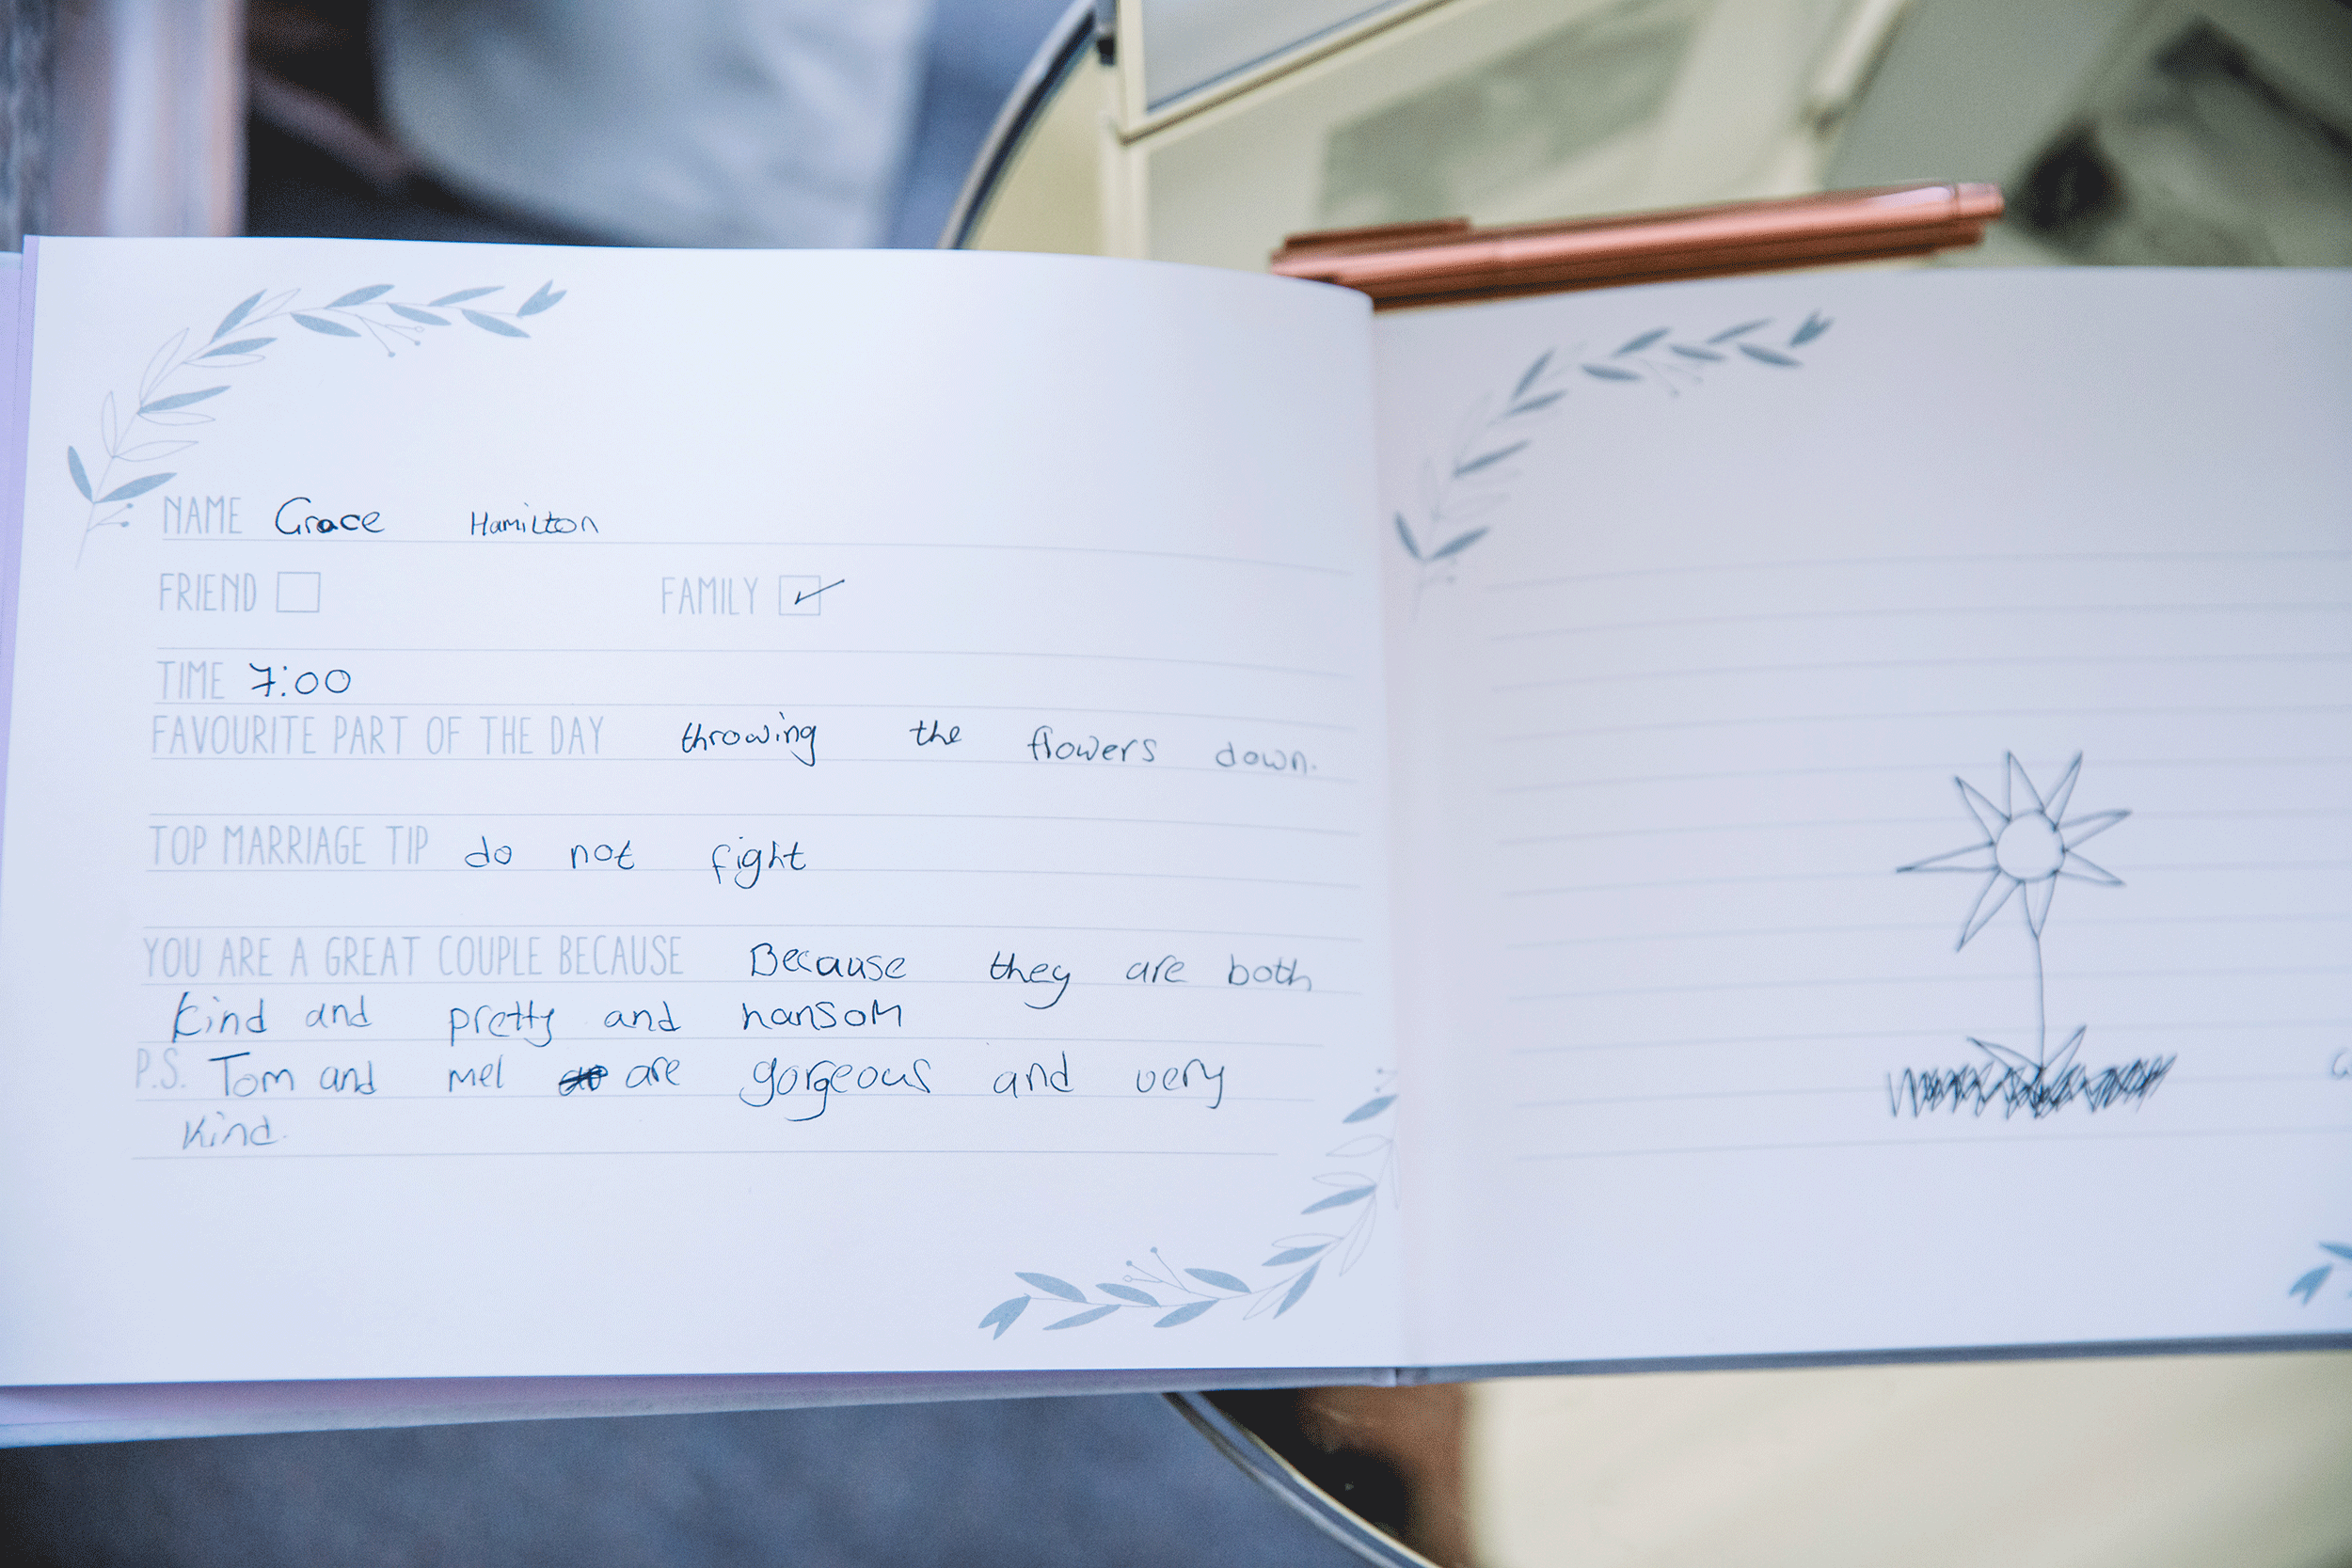 NAME Grace Hamilton
FRIEND FAMILY
TIME 7:00
FAVOURITE PART OF THE DAY throwing the flowers down.
TOP MARRIAGE TIP do not fight
YOU ARE A GREAT COUPLE BECAUSE Because they are both
kind and pretty and hansom
P.S. Tom and mel are gorgeous and very
kind.